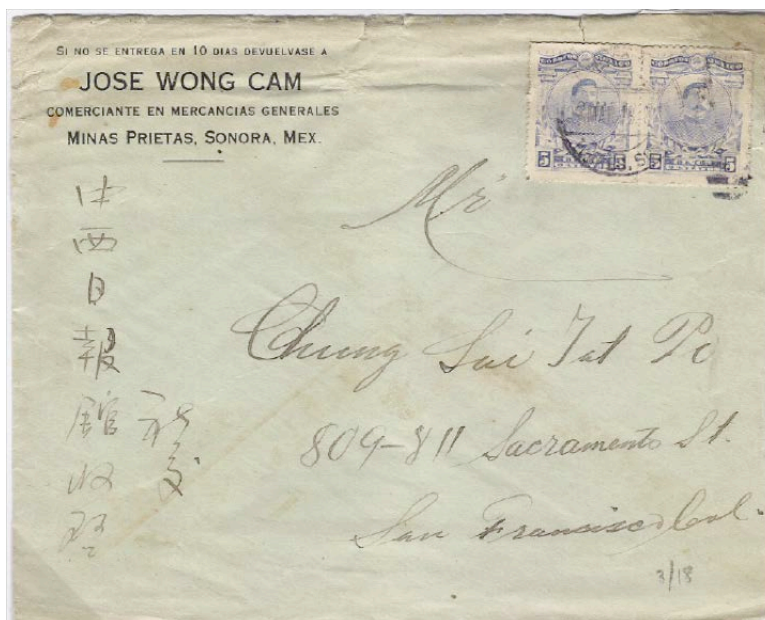 SI NO SE ENTREGA EN 10 DIAS DEVUELVASE A
JOSE WONG CAM
COMERCIANTE EN MERCANCIAS GENERALES
MINAS PRIETAS, SONORA, MEX.
5 5 5 5
Mr
Chung Sai Yat Po
809-811 Sacramento St.
San Francisco Cal.
中西日報館收
3/18